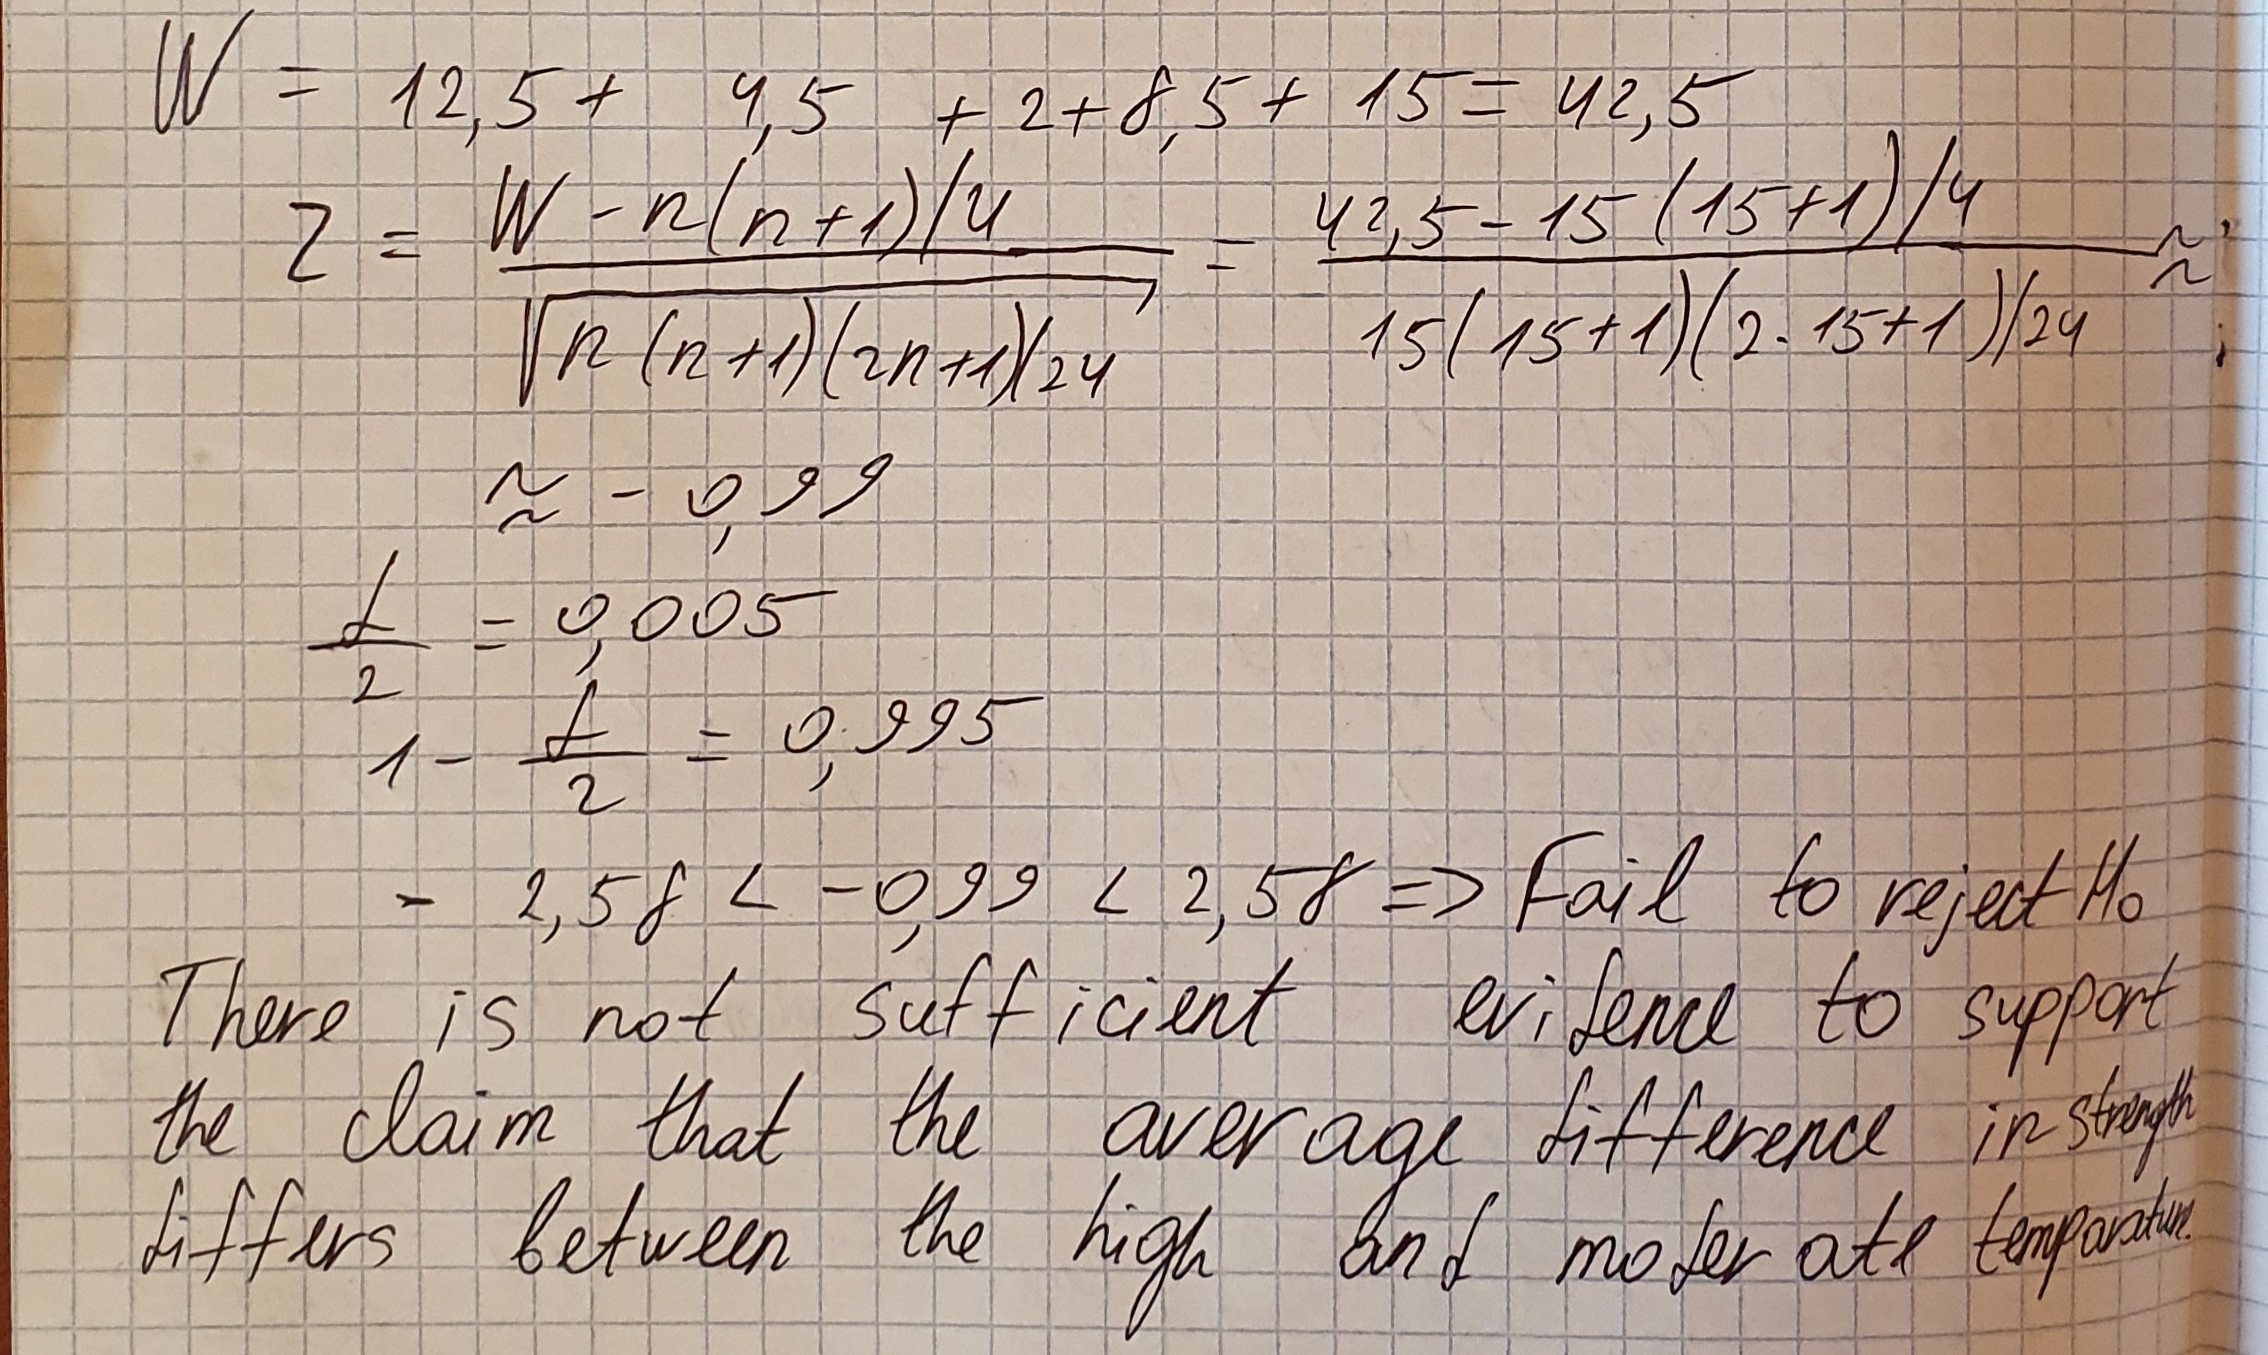 W = 12,5 + 4,5 + 2 + 8,5 + 15 = 42,5
Z = (W - n(n+1)/4) / √(n(n+1)(2n+1)/24) = (42,5 - 15(15+1)/4) / (15(15+1)(2·15+1)/24) ≈
≈ - 0,99
α/2 = 0,005
1 - α/2 = 0,995
- 2,58 < -0,99 < 2,58 => Fail to reject H₀
There is not sufficient evidence to support
the claim that the average difference in strength
differs between the high and moderate temparature.